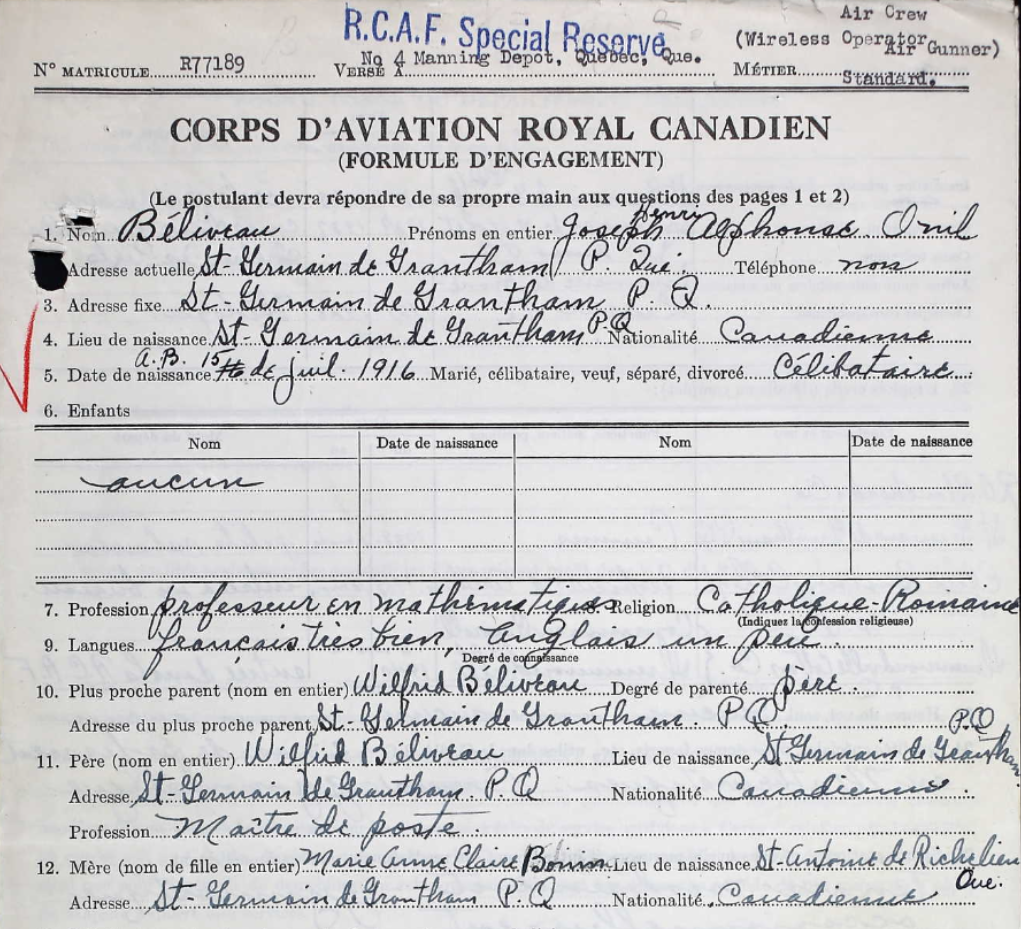 R.C.A.F. Special Reserve
Air Crew
(Wireless Operator
Air Gunner)
Nº MATRICULE R77189 VERSÉ À No 4 Manning Depot, Quebec, Que. MÉTIER Standard.
CORPS D'AVIATION ROYAL CANADIEN
(FORMULE D'ENGAGEMENT)
(Le postulant devra répondre de sa propre main aux questions des pages 1 et 2)
1. Nom Béliveau Prénoms en entier Joseph Henri Alphonse Onil
Adresse actuelle St-Germain de Grantham P. Qué. Téléphone non
3. Adresse fixe St-Germain de Grantham P. Q.
4. Lieu de naissance St-Germain de Grantham P.Q Nationalité Canadienne
5. Date de naissance A.B. 15 de juil. 1916 Marié, célibataire, veuf, séparé, divorcé Célibataire
6. Enfants
Nom Date de naissance Nom Date de naissance
aucun
7. Profession professeur en mathématiques Religion Catholique-Romaine
(Indiquez la confession religieuse)
9. Langues français très bien, Anglais un peu
Degré de connaissance
10. Plus proche parent (nom en entier) Wilfrid Béliveau Degré de parenté père.
Adresse du plus proche parent St-Germain de Grantham. P Q
11. Père (nom en entier) Wilfrid Béliveau Lieu de naissance St Germain de Grantham P.Q
Adresse St-Germain de Grantham. P. Q Nationalité Canadienne
Profession Maître de poste.
12. Mère (nom de fille en entier) Marie Anne Claire Bonin Lieu de naissance St-Antoine de Richelieu Que.
Adresse St-Germain de Grantham P. Q Nationalité Canadienne